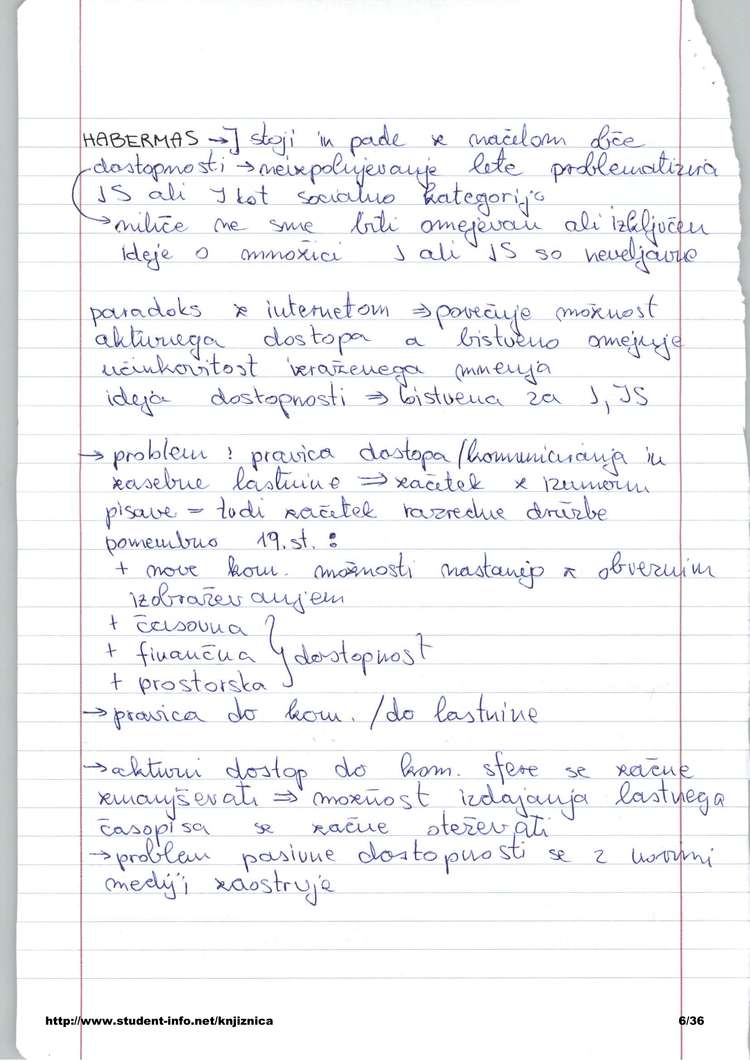 HABERMAS → J stoji in pade z načelom obče
dostopnosti → neizpolnjevanje lete problematizira
JS ali J kot socialno kategorijo
→ nihče ne sme biti omejevan ali izključen
ideje o množici J ali JS so neveljavne
paradoks z internetom ⇒ povečuje možnost
aktivnega dostopa a bistveno omejuje
učinkovitost izraženega mnenja
ideja dostopnosti ⇒ bistvena za J, JS
→ problem : pravica dostopa / komuniciranja in
zasebne lastnine ⇒ začetek z izumom
pisave = tudi začetek razredne družbe
pomembno 19. st. :
+ nove kom. možnosti nastanejo z obveznim
izobraževanjem
+ časovna
+ finančna } dostopnost
+ prostorska
→ pravica do kom. / do lastnine
→ aktivni dostop do kom. sfere se začne
zmanjševati ⇒ možnost izdajanja lastnega
časopisa se začne oteževati
→ problem pasivne dostopnosti se z novimi
mediji zaostruje
http://www.student-info.net/knjiznica 6/36